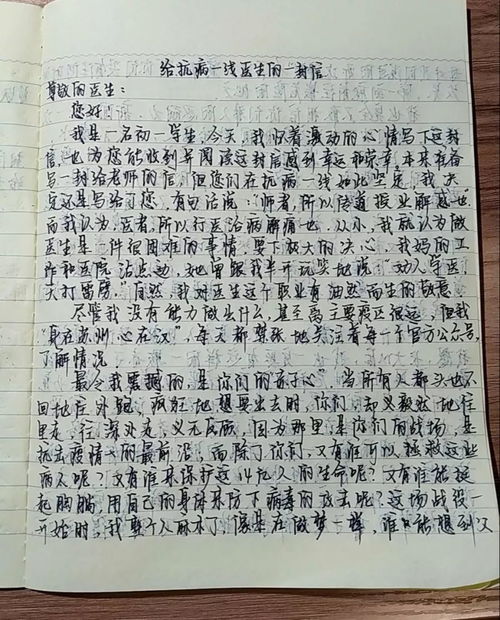 给抗病一线医生的一封信
尊敬的医生：
您好！
我是一名初一学生，今天，我怀着激动的心情写下这封
信，也为您能收到并阅读这封信感到幸运和荣幸，本来准备
写一封给老师的信，但您们在抗病一线如此坚定，我决
定还是写给了您，有句话说："师者，所以传道授业解惑也"
而我认为，医者，所以行医治病解痛也，从小，我就认为做
医生是一件很困难的事情，要下极大的决心，我妈的工
作和医院沾点边，她曾跟我半开玩笑地说"劝人学医，
天打雷劈。"自然，我对医生这个职业有油然而生的敬意
尽管我没有能力做出什么，甚至离主要疫区很远，但我
"身在苏州，心在汉"，每天都紧张地关注着每一个官方公众号，
了解情况
最令我震撼的，是你们的"赤子心"，当所有人都头也不
回地往外跑，疯狂地想要出去时，你们，却义毅然地往
里走，往深处走，义无反顾，因为那里是你们的战场，是
抗击疫情的最前沿，而除了你们，又有谁可以拯救这些
病人呢？又有谁来保护这14亿人的生命呢？又有谁能挺
起胸膛，用自己的身体来防下病毒的攻击呢？这场战役一
开始时，我整个人麻木了，像是在做梦一样，谁能想到父